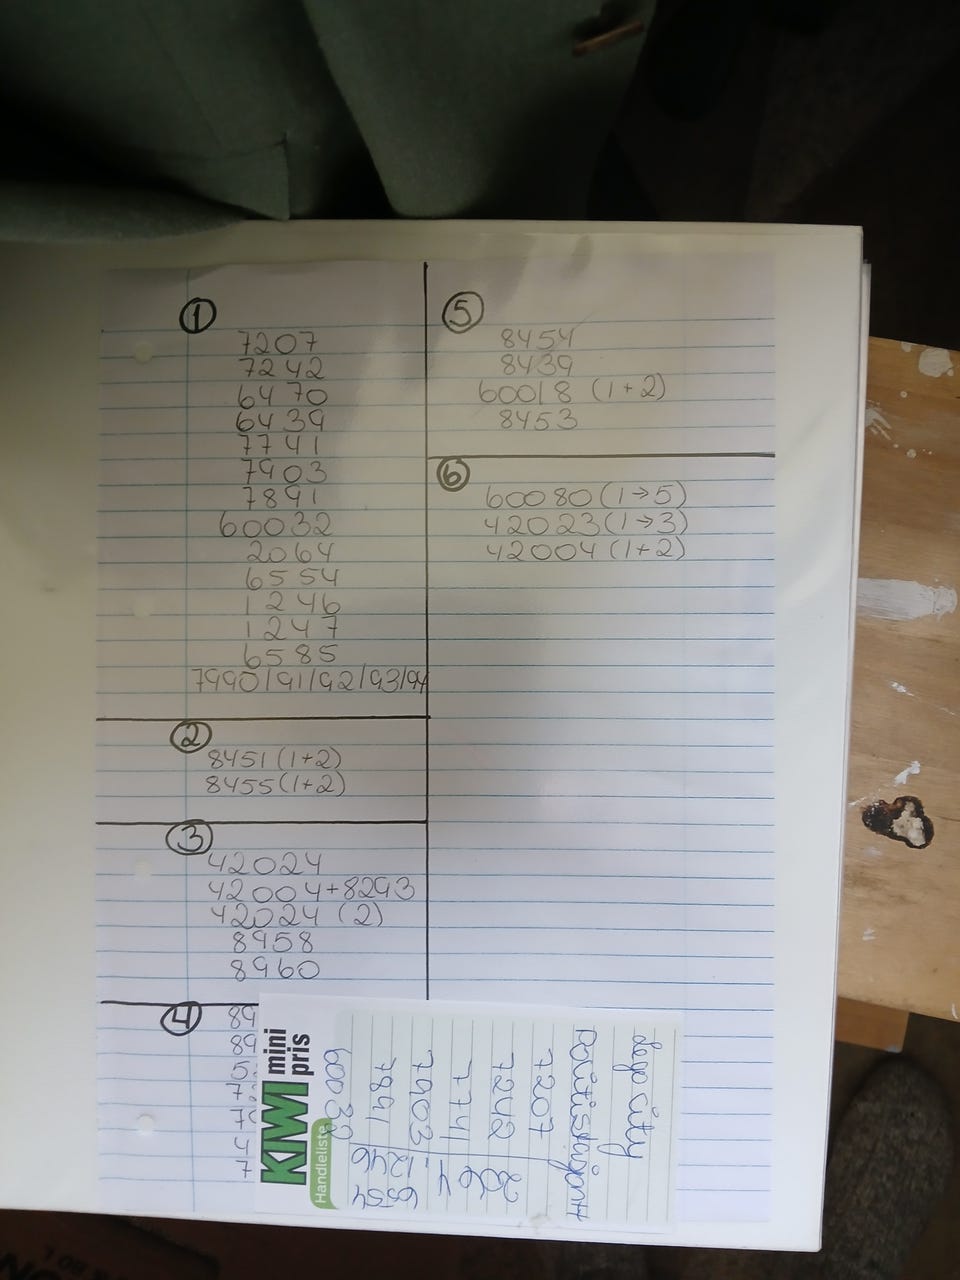 1
7207
7242
6470
6439
7741
7903
7891
60032
2064
6554
1246
1247
6585
7990/91/92/93/94
2
8451 (1+2)
8455 (1+2)
3
42024
42004+8293
42024 (2)
8958
8960
4
89
89
5
7
7
4
7
5
8454
8439
60018 (1+2)
8453
6
60080 (1→5)
42023 (1→3)
42004 (1+2)
KIWI mini pris
Handleliste
lego City
7207
7242
7741
7903
7891
60032
1246